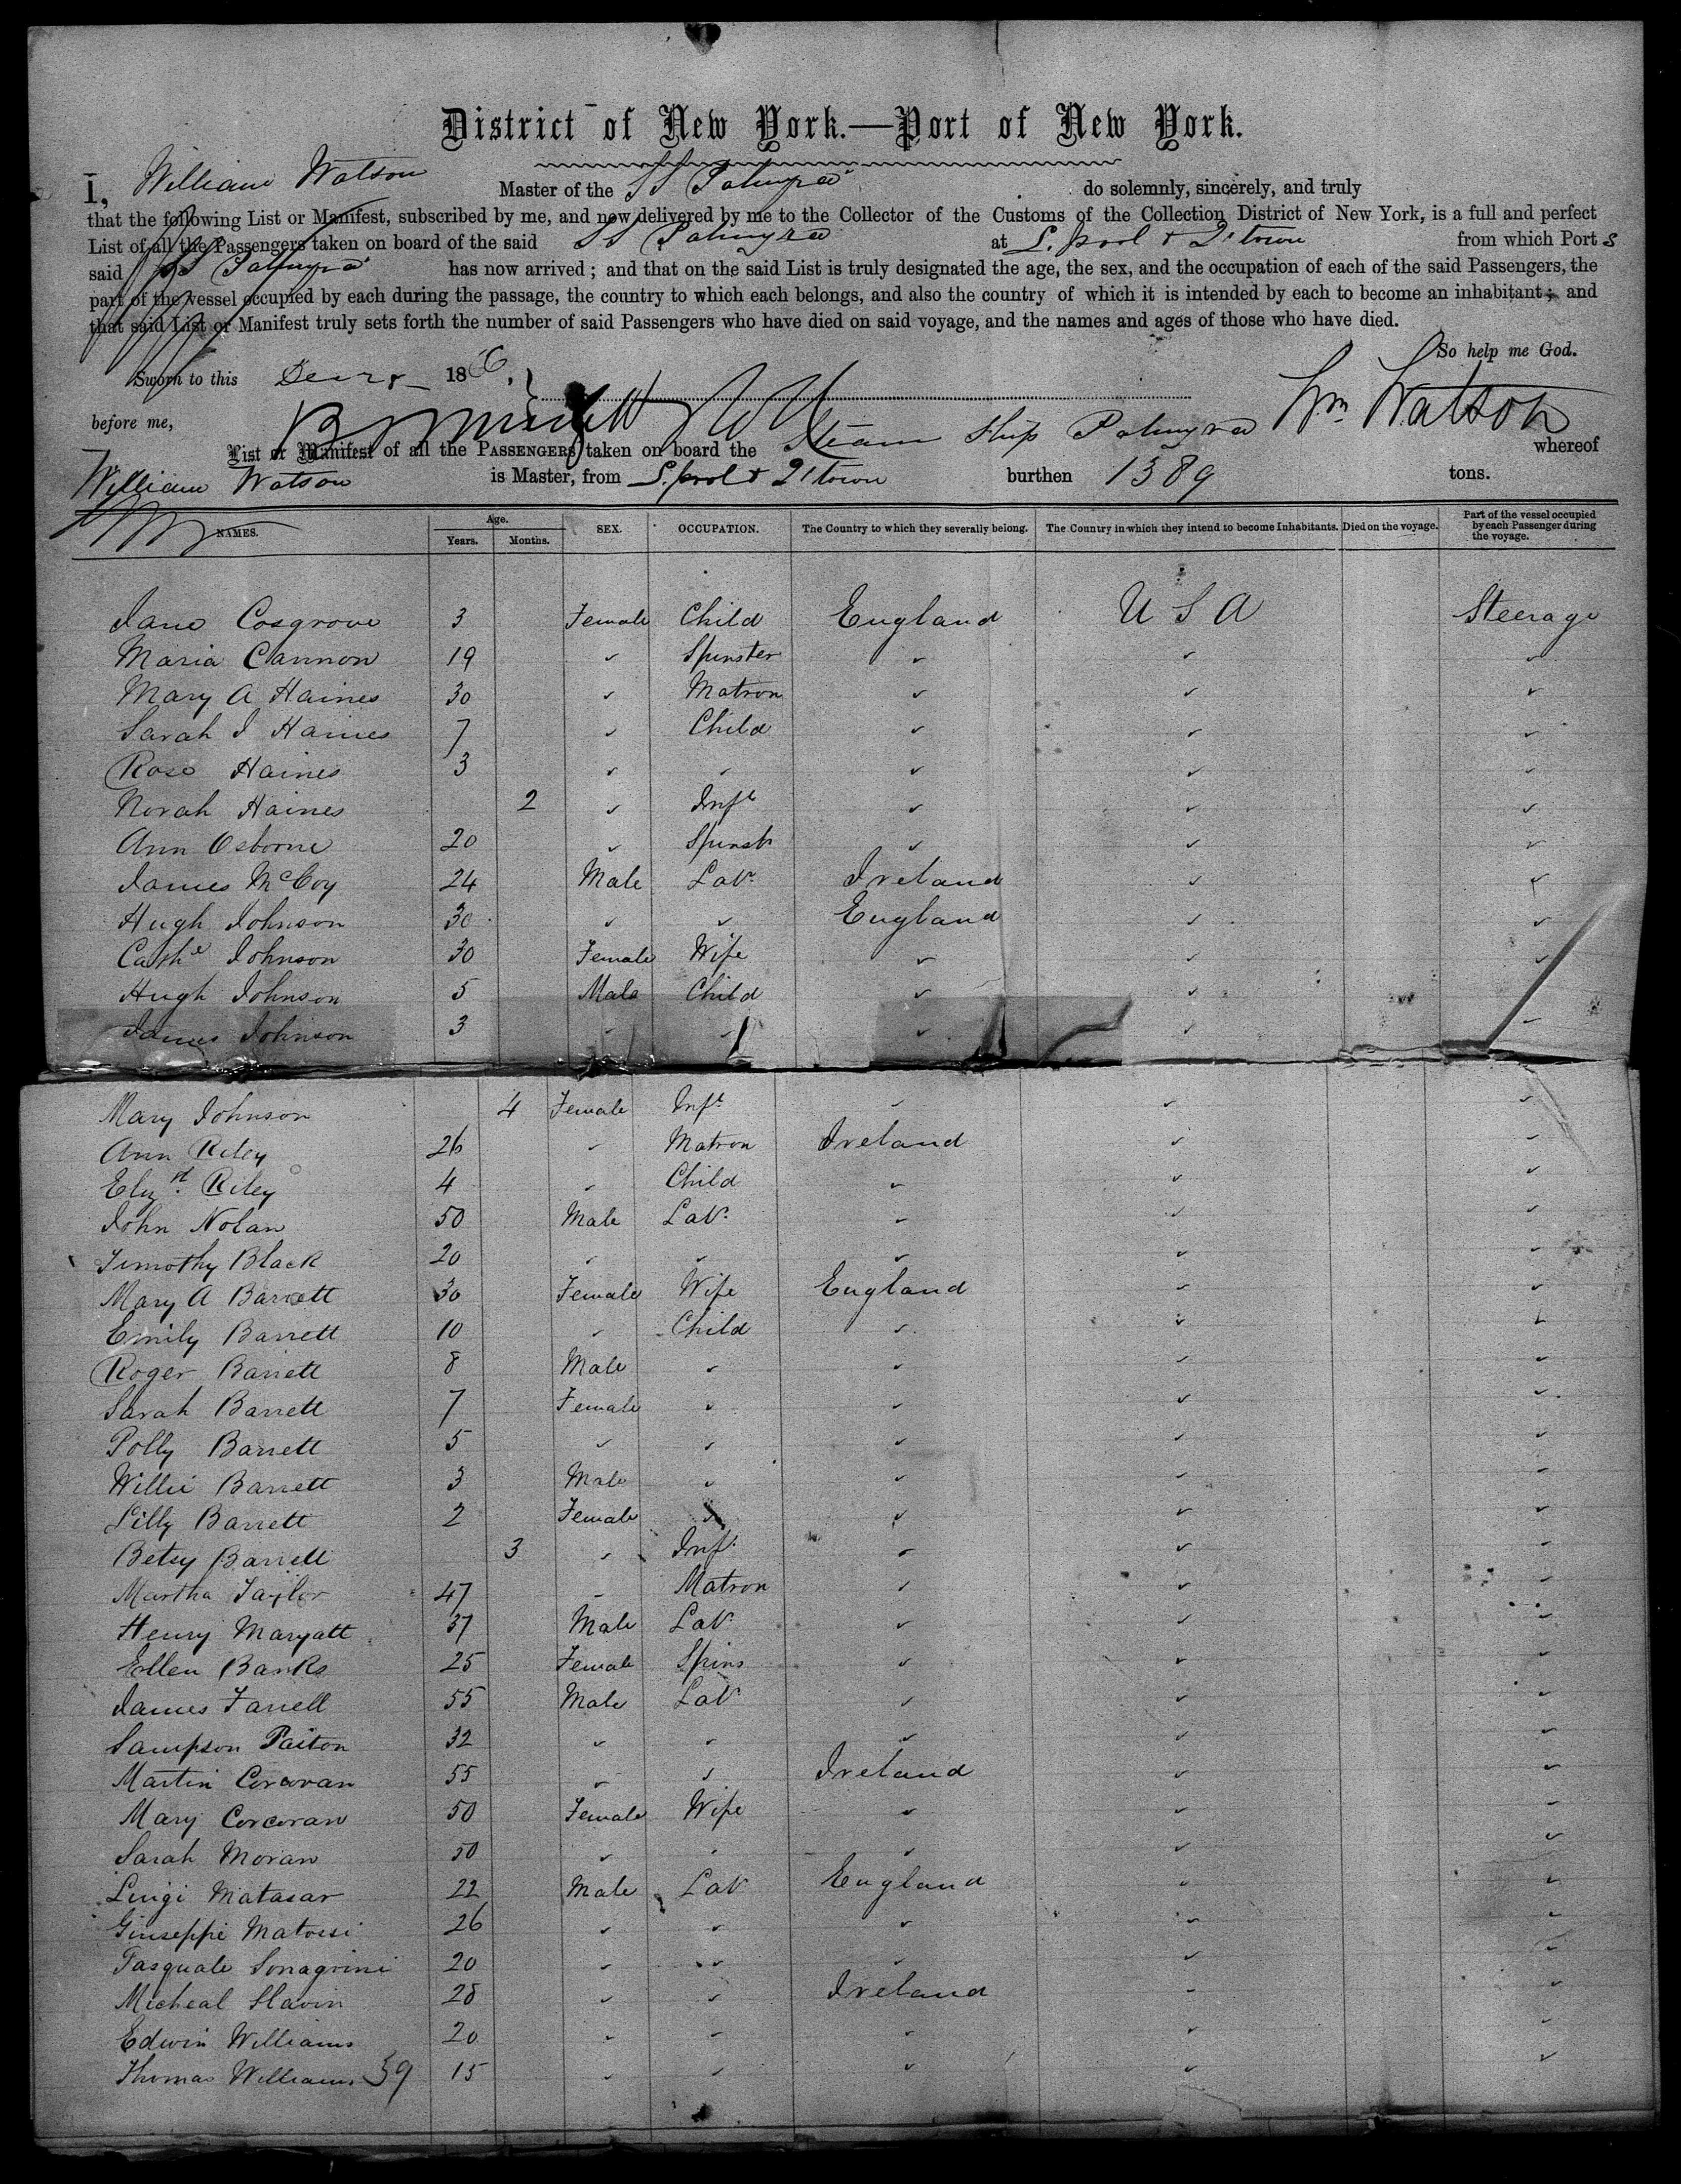 District of New York.—Port of New York.
I, William Watson Master of the SS Palmyra do solemnly, sincerely, and truly
that the following List or Manifest, subscribed by me, and now delivered by me to the Collector of the Customs of the Collection District of New York, is a full and perfect
List of all the Passengers taken on board of the said SS Palmyra at L.pool & Q'town from which Port s
said SS Palmyra has now arrived; and that on the said List is truly designated the age, the sex, and the occupation of each of the said Passengers, the
part of the vessel occupied by each during the passage, the country to which each belongs, and also the country of which it is intended by each to become an inhabitant; and
that said List or Manifest truly sets forth the number of said Passengers who have died on said voyage, and the names and ages of those who have died.
So help me God.
Sworn to this 186
before me, Wm Watson
List or Manifest of all the PASSENGERS taken on board the Steam Ship Palmyra whereof
William Watson is Master, from L.pool & Q'town burthen 1389 tons.
NAMES. Age. Years. Months. SEX. OCCUPATION. The Country to which they severally belong. The Country in which they intend to become Inhabitants. Died on the voyage. Part of the vessel occupied by each Passenger during the voyage.
Jane Cosgrove 3 Female Child England U S A Steerage
Maria Cannon 19 Spinster
Mary A Haines 30 Matron
Sarah J Haines 7 Child
Rose Haines 3
Norah Haines 2 Inft
Ann Osborne 20 Spinst
James McCoy 24 Male Labr Ireland
Hugh Johnson 30 England
Cathe Johnson 30 Female Wife
Hugh Johnson 5 Male Child
James Johnson 3
Mary Johnson 4 Female Inft
Ann Riley 26 Matron Ireland
Elizt. Riley 4 Child
John Nolan 50 Male Labr
Timothy Black 20
Mary A Barrett 30 Female Wife England
Emily Barrett 10 Child
Roger Barrett 8 Male
Sarah Barrett 7 Female
Polly Barrett 5
Willie Barrett 3 Male
Lilly Barrett 2 Female
Betsy Barrett 3 Inft
Martha Taylor 47 Matron
Henry Maryatt 37 Male Labr
Ellen Banks 25 Female Spins
James Farrell 55 Male Labr
Sampson Paiton 32
Martin Corcoran 55 Ireland
Mary Corcoran 50 Female Wife
Sarah Moran 50
Luigi Matasar 22 Male Labr England
Giuseppe Matossi 26
Pasquale Sonagrini 20
Micheal Slavin 28 Ireland
Edwin Williams 20
Thomas Williams 39 15